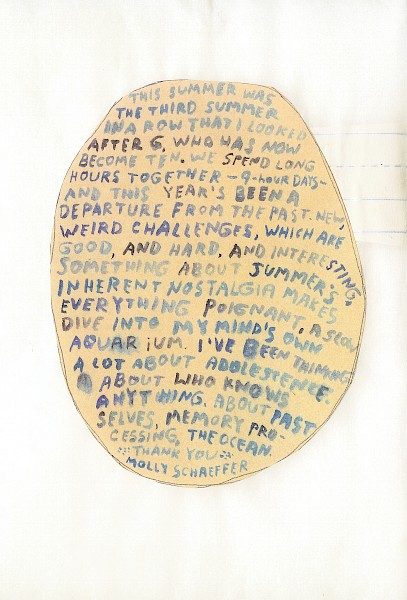 THIS SUMMER WAS
THE THIRD SUMMER
IN A ROW THAT I LOOKED
AFTER G, WHO HAS NOW
BECOME TEN. WE SPEND LONG
HOURS TOGETHER - 9-HOUR DAYS -
AND THIS YEAR'S BEEN A
DEPARTURE FROM THE PAST. NEW,
WEIRD CHALLENGES, WHICH ARE
GOOD, AND HARD, AND INTERESTING,
SOMETHING ABOUT SUMMER'S
INHERENT NOSTALGIA MAKES
EVERYTHING POIGNANT, A SLOW
DIVE INTO MY MIND'S OWN
AQUARiUM. I'VE BEEN THINKING
A LOT ABOUT ADOLESTENCE.
ABOUT WHO KNOWS
ANYTHING. ABOUT PAST
SELVES, MEMORY PRO-
CESSING, THE OCEAN.
THANK YOU
MOLLY SCHAEFFER